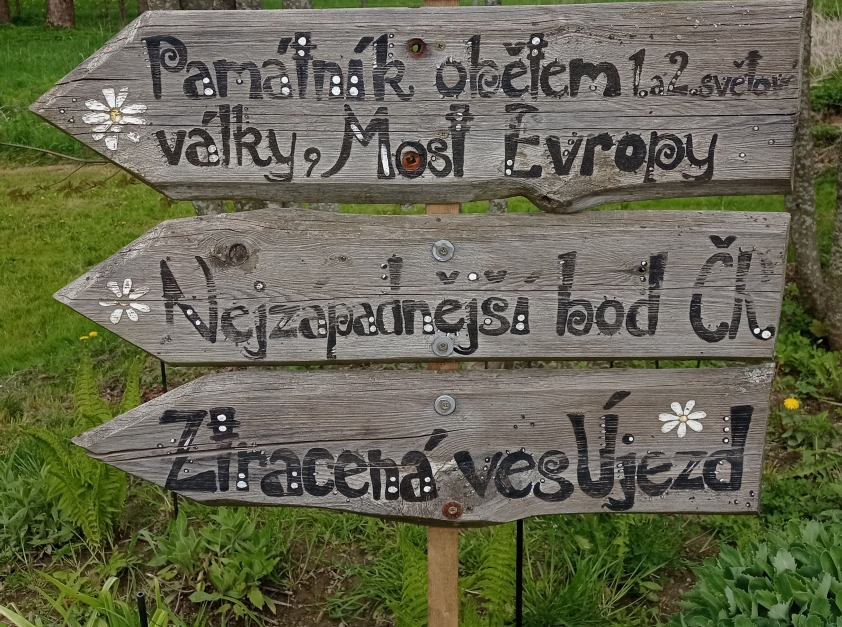 Památník obětem 1.a2.světov
války, Most Evropy
Nejzápadnější bod ČR
Ztracená ves Újezd